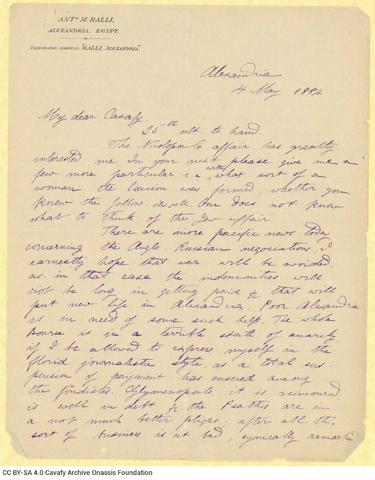 ANT. M. RALLI,
ALEXANDRIA, EGYPT.
TELEGRAPHIC ADDRESS: "RALLI, ALEXANDRIA"
Alexandria
4 May 1884
My dear Cavafy,
25th ult. to hand.
The Nicolopoulo affair has greatly
interested me. In your next please give me a
few more particulars with what sort of a
woman the liaison was formed, whether you
knew the fellow, &c. &c. One does not know
what to think of the Jew affair
There are more pacific news today
concerning the Anglo Russian negociations, I
earnestly hope that war will be avoided
as in that case the indemnities will
not be long in getting paid & that will
put new life in Alexandria. Poor Alexandria
is in need of some such help. The whole
bourse is in a terrible state of anarchy
if I be allowed to express myself in the
florid journalistic style, as a total sus-
pension of payment has ensued among
the fondistes. it is rumoured
is well in debt & the are in
a not much better plight; after all this
sort of business is not bad, cynically remarked
CC BY-SA 4.0 Cavafy Archive Onassis Foundation